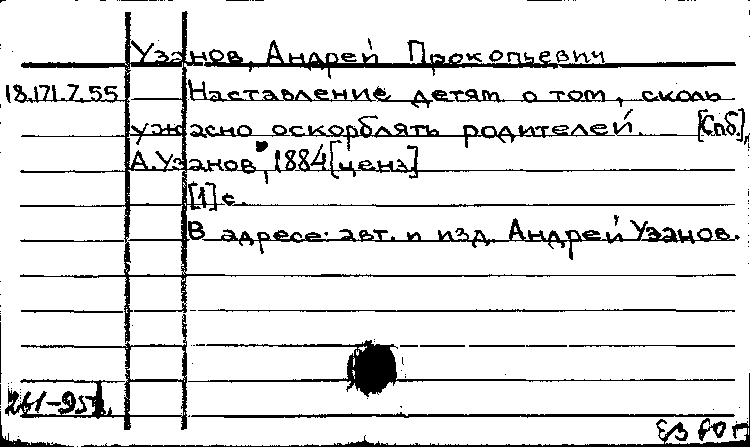 Узанов, Андрей Прокопьевич
18.171.7.55 Наставление детям о том, сколь
ужасно оскорблять родителей. [Спб.],
А. Узанов, 1884 [ценз.]
[1] с.
В адресе: авт. и изд. Андрей Узанов.
261-951.